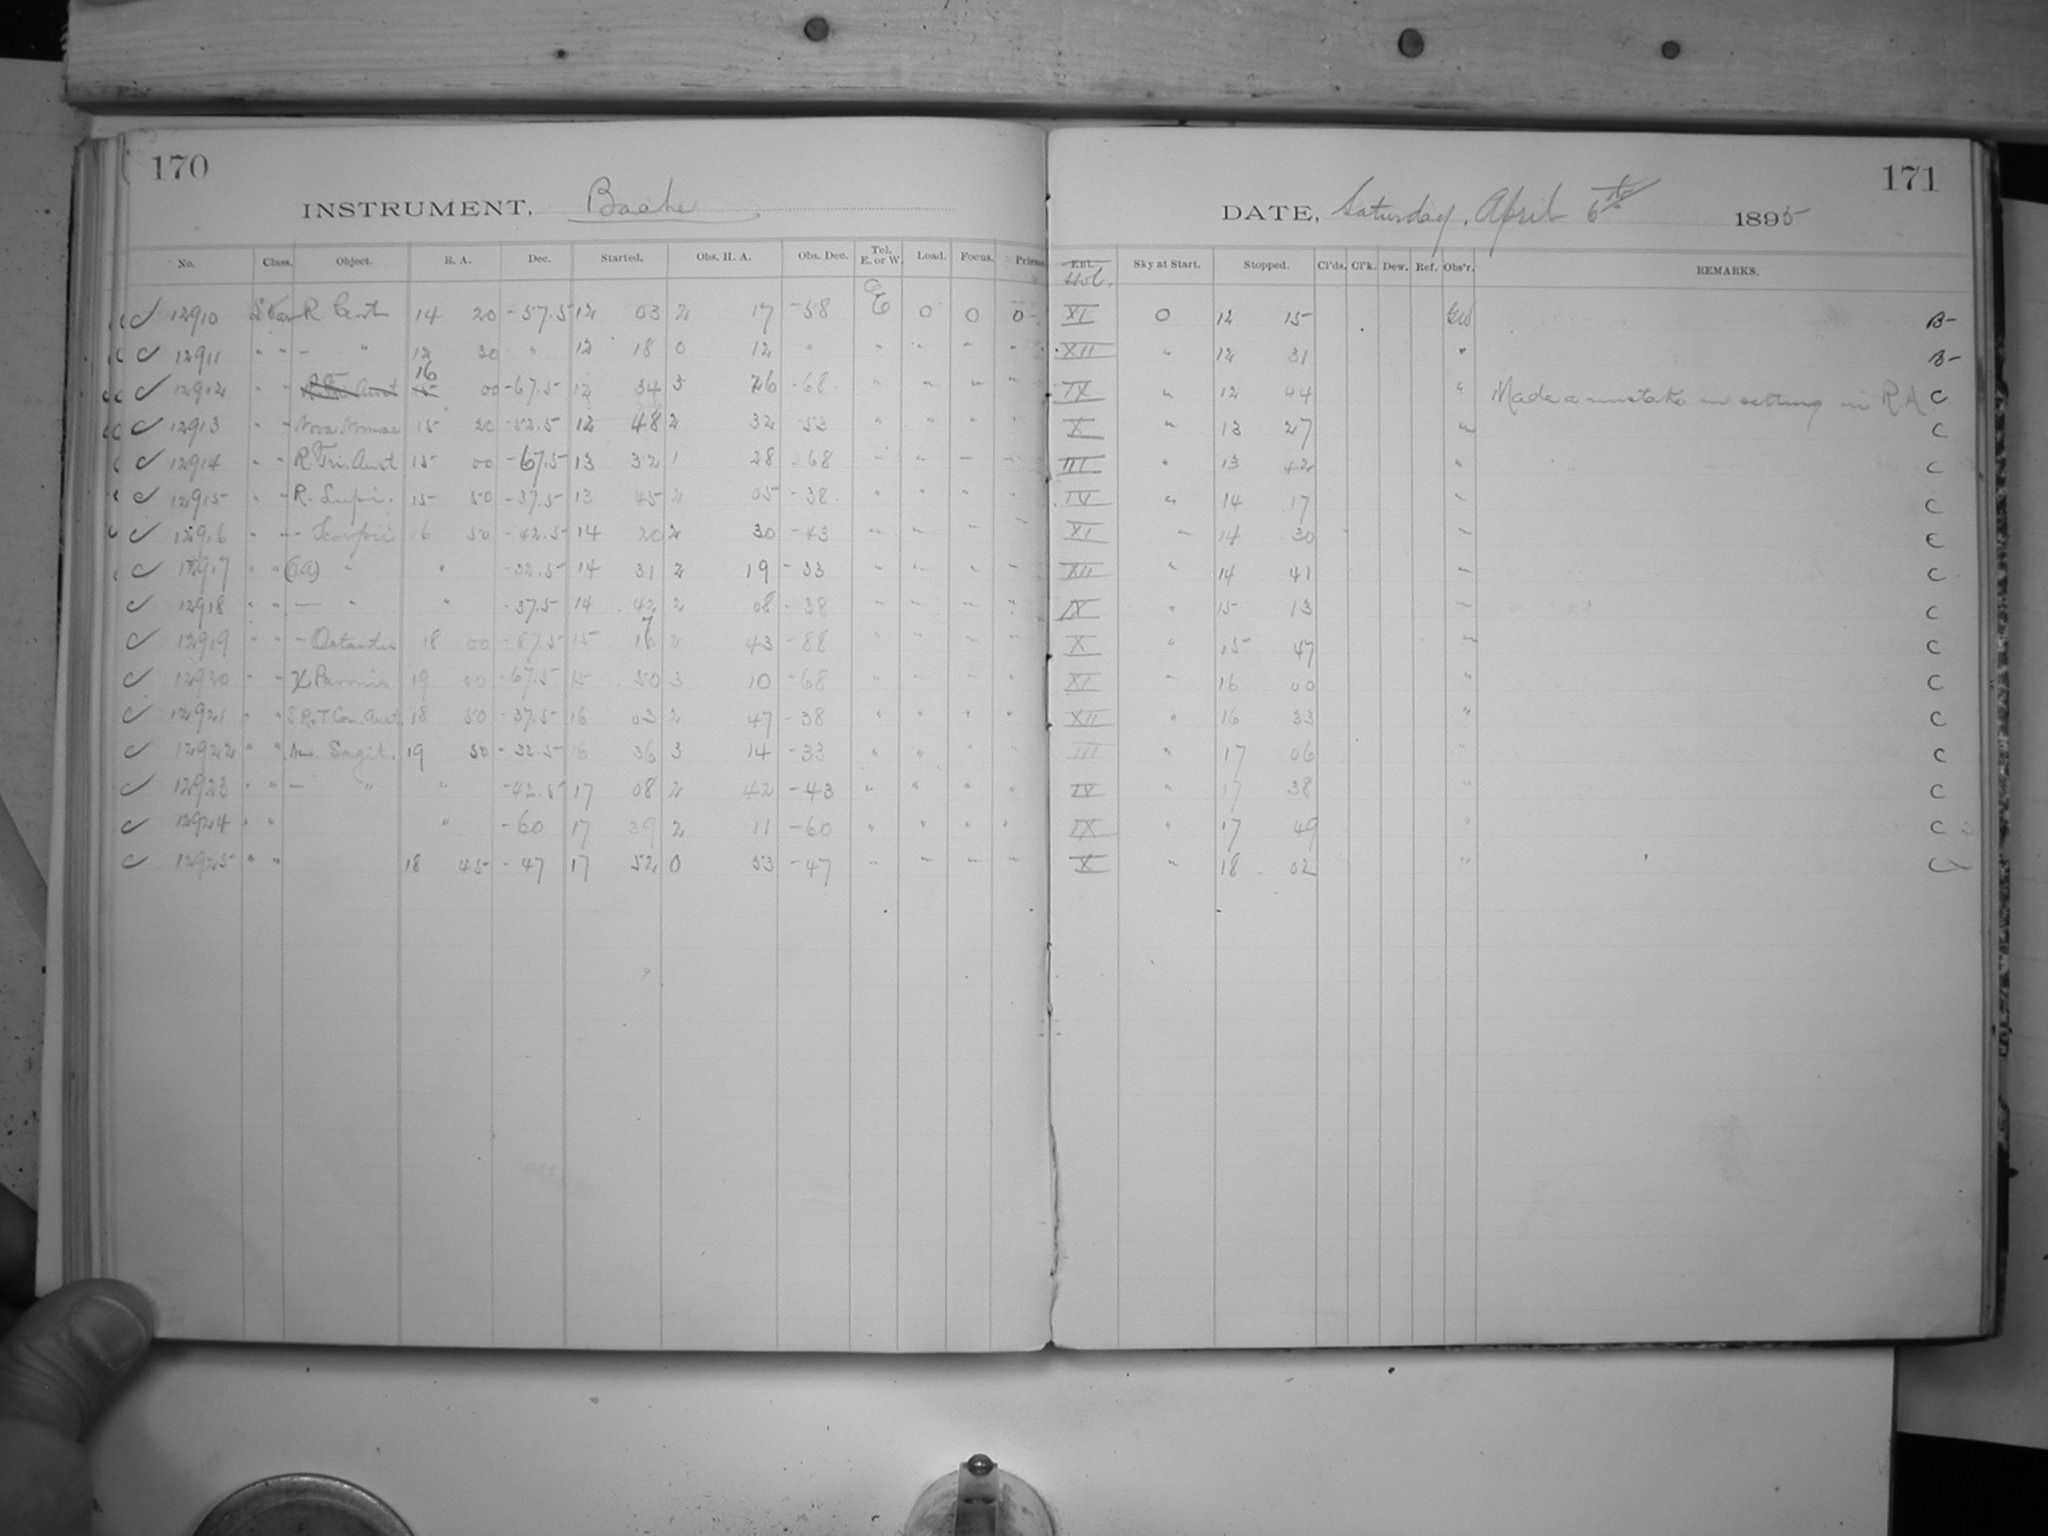 170
INSTRUMENT, Bache
No. Class. Object. R. A. Dec. Started. Obs. H. A. Obs. Dec. Tel. E. or W. Load. Focus. Prisms
12910 R. Cent 14 20 -57.5 12 03 2 17 -58 E 0 0 0
12911 " " — " 12 30 " 12 18 0 12 " " " " "
12912 " " 16 00 -67.5 12 34 3 26 -68 " " " "
12913 " " Nova Normae 15 20 -52.5 12 48 2 32 -53 " " " "
12914 " " R. Tri. Aust 15 00 -67.5 13 32 1 28 -68 " " " "
12915 " " R. Lupi. 15 50 -37.5 13 45 2 05 -38 " " " "
12916 " " - Scorpii 16 50 -42.5 14 20 2 30 -43 " " " "
12917 " " " " -32.5 14 31 2 19 -33 " " " "
12918 " " — " " -37.5 14 42 2 08 -38 " " " "
12919 " " - Octantis 18 00 -87.5 15 17 2 43 -88 " " " "
12920 " " 19 00 -67.5 15 50 3 10 -68 " " " "
12921 " " S R & T Cor. Aust 18 50 -37.5 16 03 2 47 -38 " " " "
12922 " " Sagit. 19 50 -32.5 16 36 3 14 -33 " " " "
12923 " " — " " -42.5 17 08 2 42 -43 " " " "
12924 " " " -60 17 39 2 11 -60 " " " "
12925 " " 18 45 -47 17 52 0 53 -47 " " " "
171
DATE, Saturday, April 6th 1895
Sky at Start. Stopped. Cl'ds. Cl'k. Dew. Ref. Obs'r. REMARKS.
XI 0 12 15 B-
XII " 12 31 " B-
IX " 12 44 " Made a mistake in setting in R.A. C
X " 13 27 " C
III " 13 42 " C
IV " 14 17 " C
XI " 14 30 " C
XII " 14 41 " C
IX " 15 13 " C
X " 15 47 " C
XI " 16 00 " C
XII " 16 33 " C
III " 17 06 " C
IV " 17 38 " C
IX " 17 49 " C
X " 18 02 " C